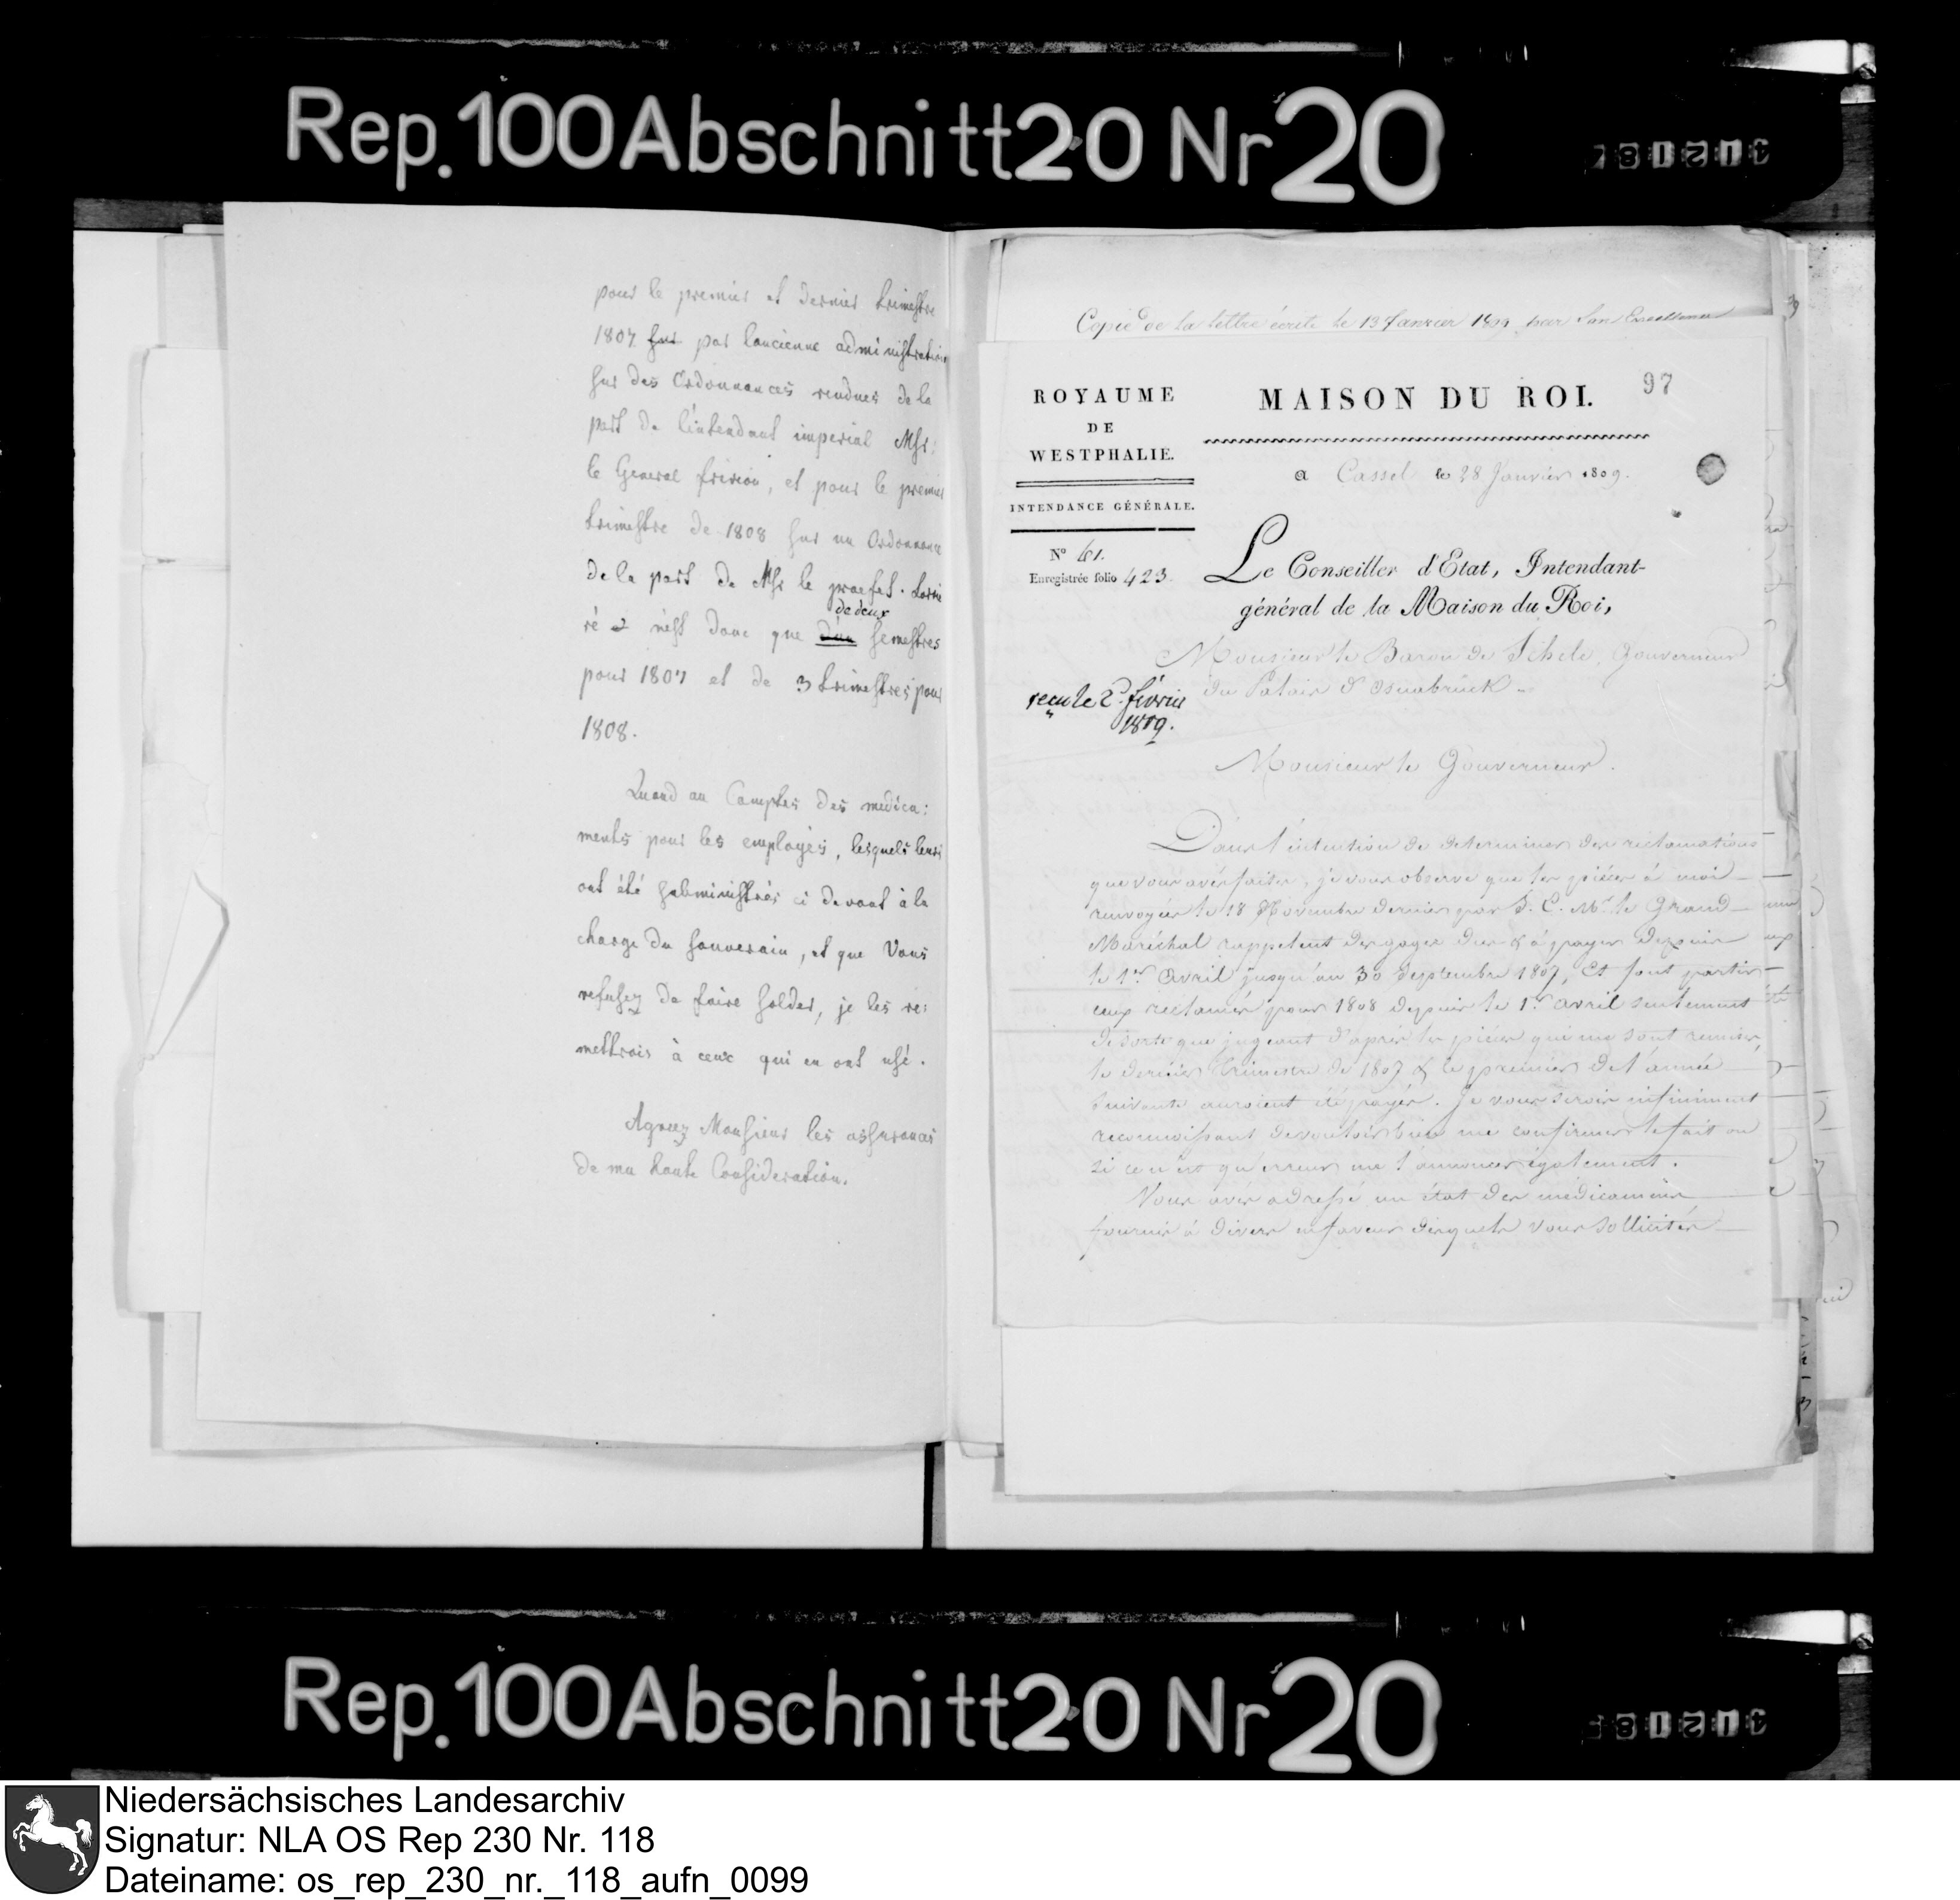 Rep. 100 Abschnitt 20 Nr 20
pour le premier et dernier trimestre
1807 sur par l'ancienne administration
sur des Ordonnances rendues de la
part de l'intendant imperial Msr:
le General fririon, et pour le premier
trimestre de 1808 sur un Ordonnance
de la part de Msr le praefet.
de deux
ré n'est donc que d'un semestres
pour 1807 et de 3 trimestres pour
1808.
Quand au Comptes des medica:
ments pour les employés, lesquels leurs
ont été subministrés ci devant à la
charge du souverain, et que Vous
refusez de faire solder, je les re:
mettrois à ceux qui en ont usé.
Agreez Monsieur les assurances
de ma haute Consideration.
Copie de la lettre écrite le 13 Janvier 1809 par Son Excellence
97
ROYAUME
DE
WESTPHALIE.
INTENDANCE GÉNÉRALE.
N° 61.
Enregistrée folio 423
recu le 2 fevrier
1809.
MAISON DU ROI.
a Cassel le 28 Janvier 1809.
Le Conseiller d'Etat, Intendant-
général de la Maison du Roi,
Monsieur le Baron de Schele, Gouverneur
du Palais d'Osnabrück
Monsieur le Gouverneur.
Dans l'intention de determiner des reclamations
que vous avés faites, je vous observe que les pièces à moi
renvoyées le 18 Novembre dernier par S. E. Mr. le Grand
Maréchal rappelent des gages dus & à payer depuis
le 1er Avril jusqu'au 30 Septembre 1807, Et font partir
ceux reclamés pour 1808 depuis le 1r. avril seulement
de sorte que jugeant d'après les pièces qui me sont remises,
le dernier Trimestre de 1807 & le premier de l'année
suivante auroient été payés. Je vous serois infiniment
reconnoissant de vouloir bien me confirmer le fait ou
si ce n'est qu'erreur me l'annoncer également.
Vous avés adressé un état des médicamens
fournis à divers en faveur desquels vous sollicités
Rep. 100 Abschnitt 20 Nr 20
Niedersächsisches Landesarchiv
Signatur: NLA OS Rep 230 Nr. 118
Dateiname: os_rep_230_nr._118_aufn_0099